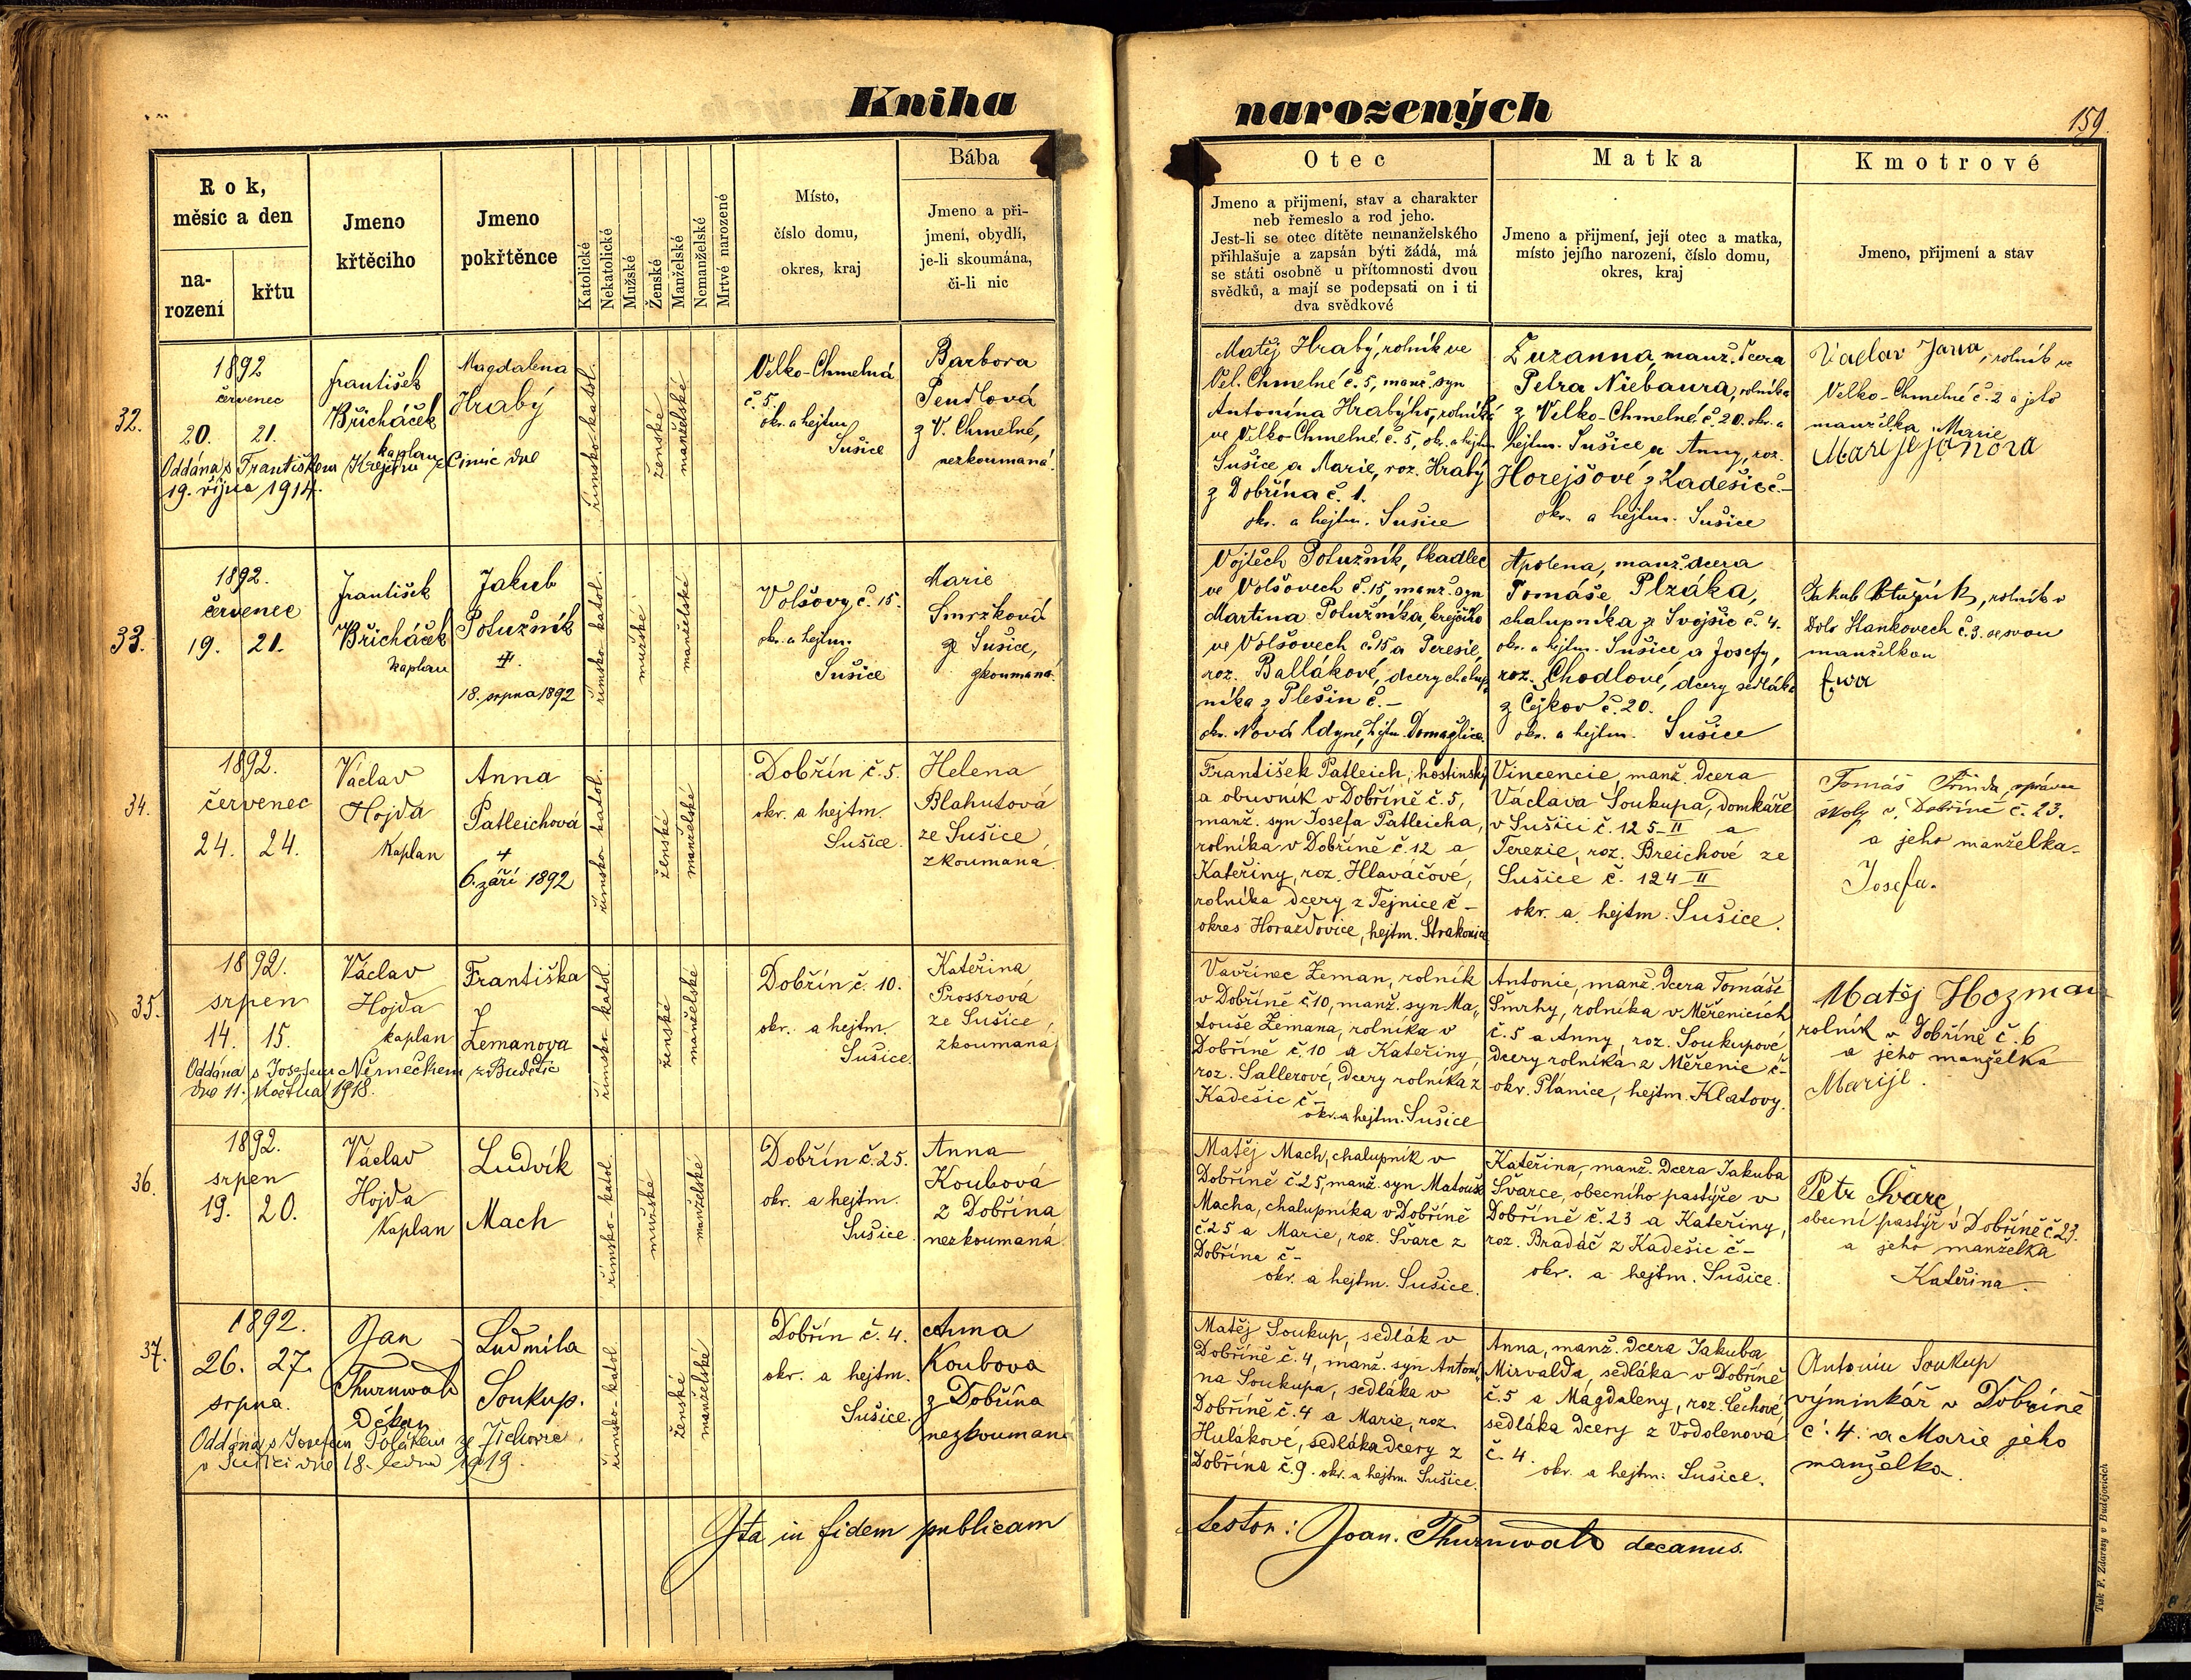 Kniha
narozených
159.
Rok,
měsíc a den
na-
rození
křtu
Jmeno
křtěcího
Jmeno
pokřtěnce
Katolické
Nekatolické
Mužské
Ženské
Manželské
Nemanželské
Mrtvé narozené
Místo,
číslo domu,
okres, kraj
Bába
Jmeno a při-
jmení, obydlí,
je-li skoumána,
či-li nic
Otec
Jmeno a přijmení, stav a charakter
neb řemeslo a rod jeho.
Jest-li se otec dítěte nemanželského
přihlašuje a zapsán býti žádá, má
se státi osobně u přítomnosti dvou
svědků, a mají se podepsati on i ti
dva svědkové
Matka
Jmeno a přijmení, její otec a matka,
místo jejího narození, číslo domu,
okres, kraj
Kmotrové
Jmeno, přijmení a stav
32.
1892
červenec
20. 21.
František
Břicháček
kaplan
Magdalena
Hrabý
Oddána s Františkem Krejčím z Čimic dne
19. října 1914.
římsko-katol.
ženské
manželské
Velko-Chmelná
č. 5.
okr. a hejtm.
Sušice
Barbora
Pendlová
z V. Chmelné,
nezkoumaná.
Matěj Hrabý, rolník ve
Vel. Chmelné č. 5, manž. syn
Antonína Hrabýho, rolníka
ve Velko-Chmelné č. 5, ok. a hejtm
Sušice a Marie, roz. Hrabý
z Dobřína č. 1.
okr. a hejtm. Sušice
Zuzanna, manž. dcera
Petra Niebaura, rolníka
z Velko-Chmelné č. 20. okr. a
hejtm. Sušice a Anny, roz.
Horejšové z Kadešic č. –
okr. a hejtm. Sušice
Václav Jana, rolník ve
Velko-Chmelné č. 2 a jeho
manželka Marie
Marije janova
33.
1892.
červenec
19. 21.
František
Břicháček
kaplan
Jakub
Potužník
‡.
18. srpna 1892
římsko katol.
mužské
manželské
Volšovy č. 15.
okr. a hejtm.
Sušice
Marie
Smrzková
ze Sušice,
zkoumaná.
Vojtěch Potužník, tkadlec
ve Volšovech č. 15, manž. syn
Martina Potužníka, krejčího
ve Volšovech č. 15 a Teresie,
roz. Ballákové, dcery chalup-
níka z Plešin č. –
okr. Nová Kdyně, hejtm. Domažlice.
Apolena, manž. dcera
Tomáše Plzáka,
chalupníka ze Svojšic č. 4.
okr. a hejtm. Sušice a Josefy,
roz. Chodlové, dcery sedláka
z Čejkov č. 20.
okr. a hejtm. Sušice
Jakub Potužník, rolník v
Dolo Stankovech č. 3. se svou
manželkou
Ewa
34.
1892.
červenec
24. 24.
Václav
Hojda
Kaplan
Anna
Patleichová
+
6. září 1892
římsko katol.
ženské
manželské
Dobřín č. 5.
okr. a hejtm.
Sušice.
Helena
Blahutová
ze Sušice
zkoumaná.
František Patleich, hostinský
a obuvník v Dobříně č. 5,
manž. syn Josefa Patleicha,
rolníka v Dobříně č. 12 a
Kateřiny, roz. Hlaváčové,
rolníka dcery z Tejnice č –
okres Horažďovice, hejtm. Strakonice
Vincencie, manž. dcera
Václava Soukupa, domkáře
v Sušici č. 125-II a
Terezie, roz. Breichové ze
Sušice č. 124-II
okr. a hejtm. Sušice.
Tomáš Přinda, správce
školy v Dobříně č. 23.
a jeho manželka
Josefa.
35.
1892.
srpen
14. 15.
Václav
Hojda
kaplan
Františka
Zemanova
Oddána s Josefem Němečkem z Budětic
dne 11. května 1918.
římsko katol.
ženské
manželské
Dobřín č. 10.
okr. a hejtm.
Sušice
Kateřina
Prossrová
ze Sušice,
zkoumaná
Vavřinec Zeman, rolník
v Dobříně č 10, manž. syn Ma-
touše Zemana, rolníka v
Dobříně č. 10 a Kateřiny
roz. Sallerové, dcery rolníka z
Kadešic č –
okr. a hejtm. Sušice
Antonie, manž. dcera Tomáše
Smrhy, rolníka v Měřenicích
č. 5 a Anny, roz. Soukupové
dcery rolníka z Měřenic č –
okr. Plánice, hejtm. Klatovy.
Matěj Hozman
rolník v Dobříně č. 6
a jeho manželka
Marije.
36.
1892.
srpen
19. 20.
Václav
Hojda
Kaplan
Ludvík
Mach
římsko-katol.
mužské
manželské
Dobřín č. 25.
okr. a hejtm.
Sušice.
Anna
Koubová
z Dobřína
nezkoumaná
Matěj Mach, chalupník v
Dobříně č. 25, manž. syn Matouše
Macha, chalupníka v Dobříně
č. 25 a Marie, roz. Švarc z
Dobřína č –
okr. a hejtm. Sušice.
Kateřina, manž. dcera Jakuba
Švarce, obecního pastýře v
Dobříně č. 23 a Kateřiny,
roz. Bradáč z Kadešic č –
okr. a hejtm. Sušice.
Petr Švarc
obecní pastýř v Dobříně č 23.
a jeho manželka
Kateřina.
37.
1892.
26. 27.
srpna.
Jan
Thurnwald
Děkan
Ludmila
Soukup.
Oddána s Josefem Polákem ze Žichovic
v Sušici dne 18. ledna 1919.
římsko-katol
ženské
manželské
Dobřín č. 4.
okr. a hejtm.
Sušice.
Anna
Koubova
z Dobřína
nezkoumana
Matěj Soukup, sedlák v
Dobříně č. 4, manž. syn Antoní-
na Soukupa, sedláka v
Dobříně č. 4 a Marie, roz.
Hulákové, sedláka dcery z
Dobřína č. 9. okr. a hejtm. Sušice.
Anna, manž. dcera Jakuba
Mirvalda, sedláka v Dobříně
č. 5 a Magdaleny, roz. Čechové,
sedláka dcery z Vodolenova
č. 4.
okr. a hejtm. Sušice.
Antonin Soukup
výminkář v Dobříně
č. 4. a Marie jeho
manželka.
Ita in fidem publicam
testor: Joan. Thurnwald decanus.
Tisk F. Zdarssy v Budějovicích